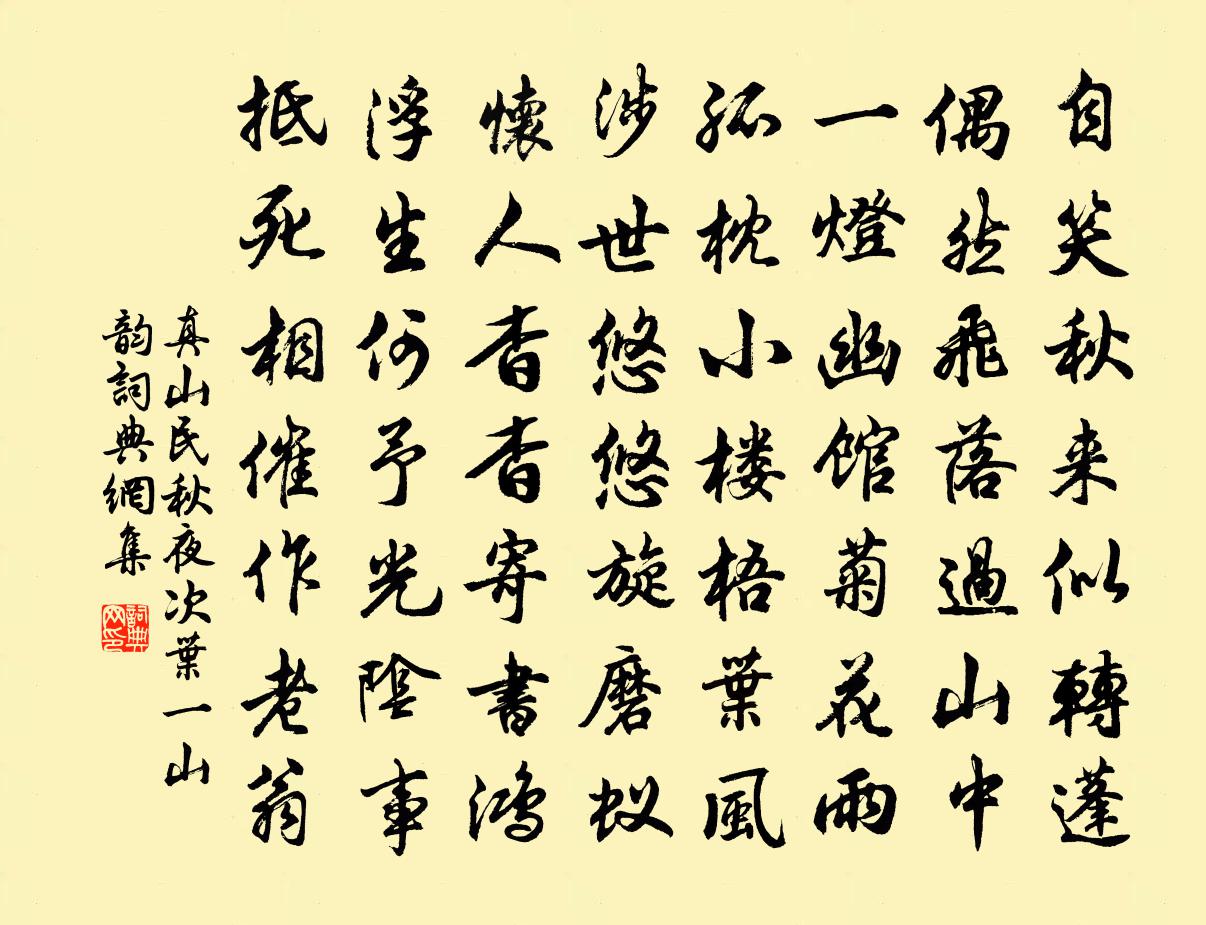 自笑秋来似轉蓬
偶然飛落過山中
一燈幽館菊花雨
孤枕小楼梧葉風
涉世悠悠旋磨蚁
懷人杳杳寄書鴻
浮生何予光陰事
抵死相催作老翁
真山民秋夜次葉一山
韵詞典網集
詞典网印